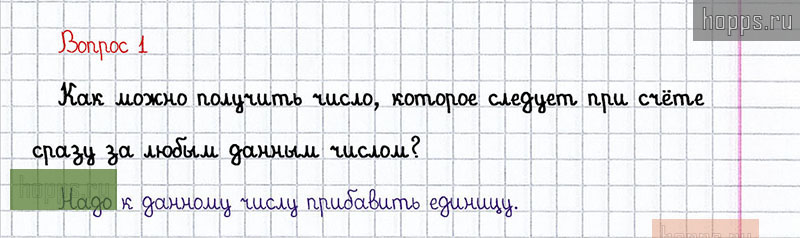 hopps.ru
Вопрос 1
Как можно получить число, которое следует при счёте
сразу за любым данным числом?
hopps.ru
Надо к данному числу прибавить единицу.
hopps.ru